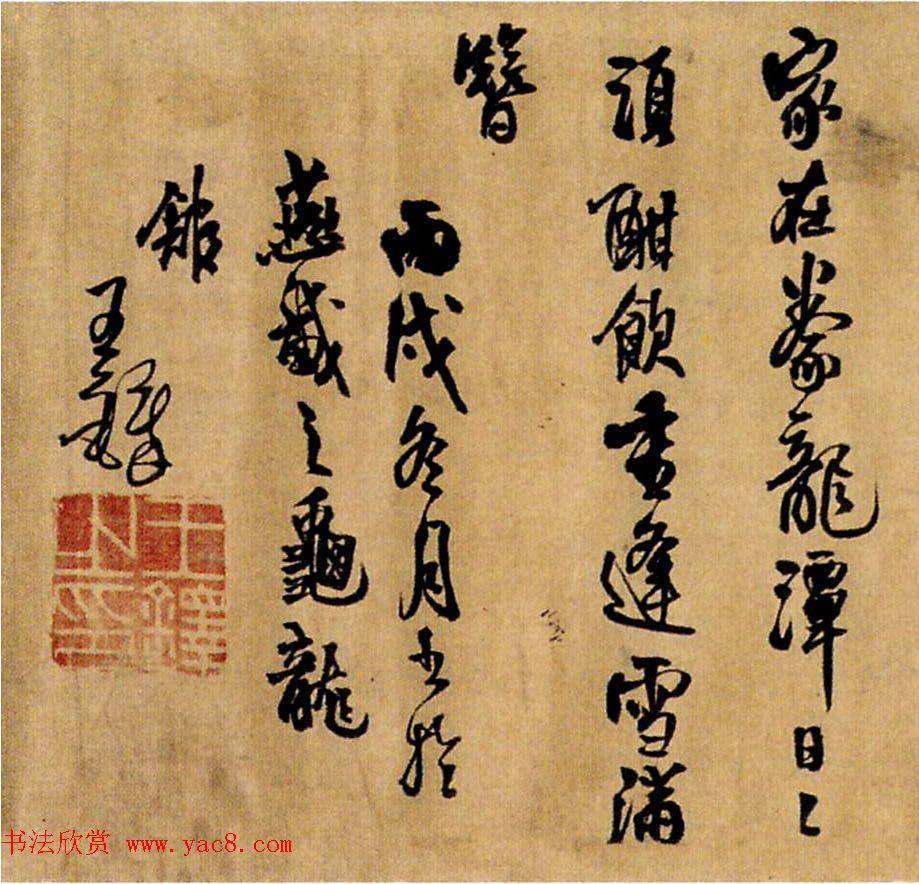 家在豢龍潭日〻
須酣飲重逢雪滿
簪
丙戌冬月書於
燕戴之龜龍
館
王鐸
王鐸之印
书法欣赏 www.yac8.com